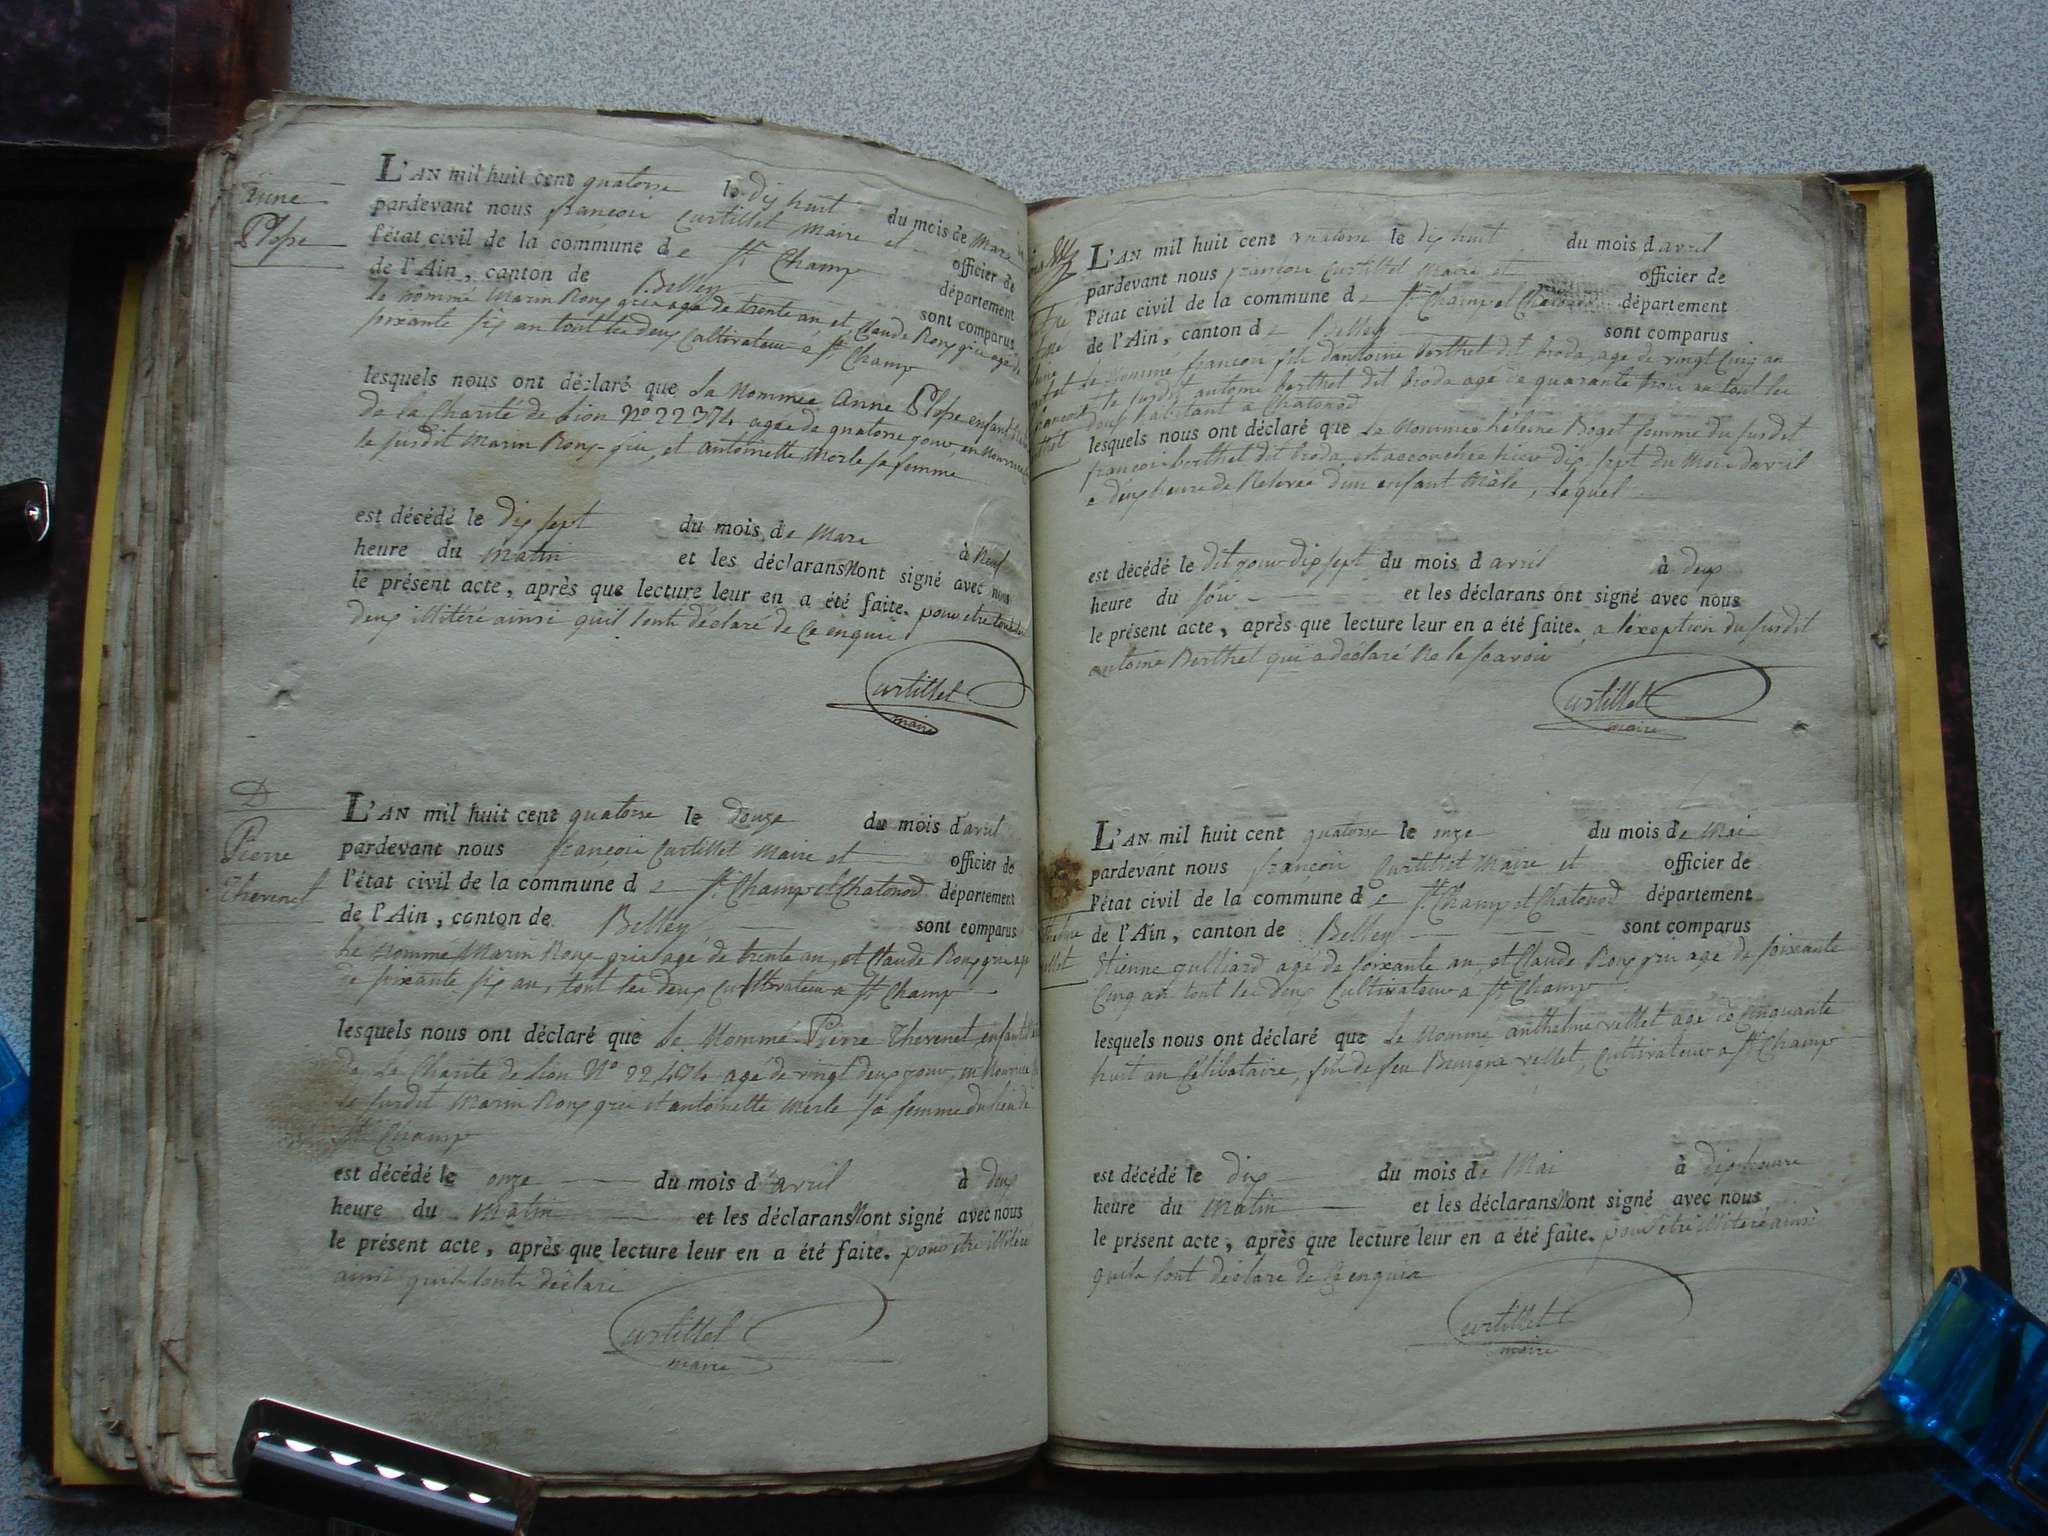 Anne
L'AN mil huit cent quatorse le dix huit du mois de Mars
pardevant nous françois Curtillet Maire et officier de
l'état civil de la commune de St Champ département
de l'Ain, canton de Belley sont comparus
le nommé Marin Roux gris agé de trente an et Claude Roux gris agé de
soixante six an tout les deux Cultivateur a St Champ
lesquels nous ont déclaré que La Nommée Anne enfant
de la Charité de Lion No 22374 agée de quatorse jour, en Nourrice
le susdit Marin Roux-gris, et antoinette Merle sa femme
est décédé le dix sept du mois de Mars à Neuf
heure du Matin et les déclarans Nont signé avec nous
le présent acte, après que lecture leur en a été faite. pour etre
deux illitéré ainsi quil lont déclaré de Ce enquis
Curtillet
maire
D
Pierre
Thevenet
L'AN mil huit cent quatorse le douze du mois d'avril
pardevant nous françois Curtillet Maire et officier de
l'état civil de la commune de St Champ et Chatonod département
de l'Ain, canton de Belley sont comparus
Le Nommé Marin Roux gris agé de trente an, et Claude Roux gris agé
de soixante six an, tout les deux Cultivateur a St Champ
lesquels nous ont déclaré que Le Nommé Pierre Thevenet enfant
De La Charité de Lion No 22474 agé de vingt deux jour, en Nourrice
le susdit Marin Roux gris et antoinette Merle sa femme du lieu de
St Champ
est décédé le onze du mois d'avril à deux
heure du Matin et les déclarans Nont signé avec nous
le présent acte, après que lecture leur en a été faite. pour etre illitéré
ainsi quils lont déclaré
Curtillet
maire
L'AN mil huit cent quatorse le dix huit du mois d'avril
pardevant nous françois Curtillet Maire et officier de
l'état civil de la commune de St Champ et département
de l'Ain, canton de Belley sont comparus
Le Nommé françois fils d'antoine Berthet dit broda, agé de vingt Cinq an
et le susdit antoine berthet dit broda agé de quarante trois an tout les
deux habitant a Chatonod
lesquels nous ont déclaré que La Nommée héleine Boget femme du susdit
françois berthet dit broda est accouchée hier dix sept du Mois davril
a deux heure de Relevée d'un enfant Mâle, lequel
est décédé le dit jour dix sept du mois d'avril à deux
heure du soir et les déclarans ont signé avec nous
le présent acte, après que lecture leur en a été faite. a lexeption du susdit
antoine Berthet qui a declaré Ne le scavoir
Curtillet
maire
L'AN mil huit cent quatorse le onze du mois de Mai
pardevant nous françois Curtillet Maire et officier de
l'état civil de la commune de St Champ et Chatonod département
de l'Ain, canton de Belley sont comparus
Etienne Julliard agé de soixante an, et Claude Roux gris agé de soixante
Cinq an tout les deux Cultivateur a St Champ
lesquels nous ont déclaré que Le Nommé anthelme vellet agé de Cinquante
huit an Célibataire, fils de feu Benigne vellet, Cultivateur a St Champ
est décédé le dix du mois de Mai à dix heure
heure du Matin et les déclarans Nont signé avec nous
le présent acte, après que lecture leur en a été faite. pour etre illitéré ainsi
quils lont déclaré de Ce enquis
Curtillet
maire